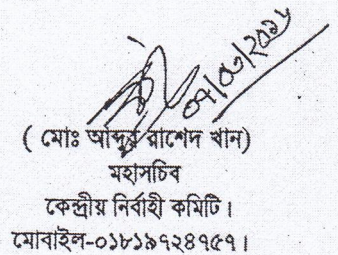 ০৭/০৩/২০১৮
( মোঃ আব্দুর রাশেদ খান)
মহাসচিব
কেন্দ্রীয় নির্বাহী কমিটি।
মোবাইল-০১৮১৯৭২৪৭৫৭।